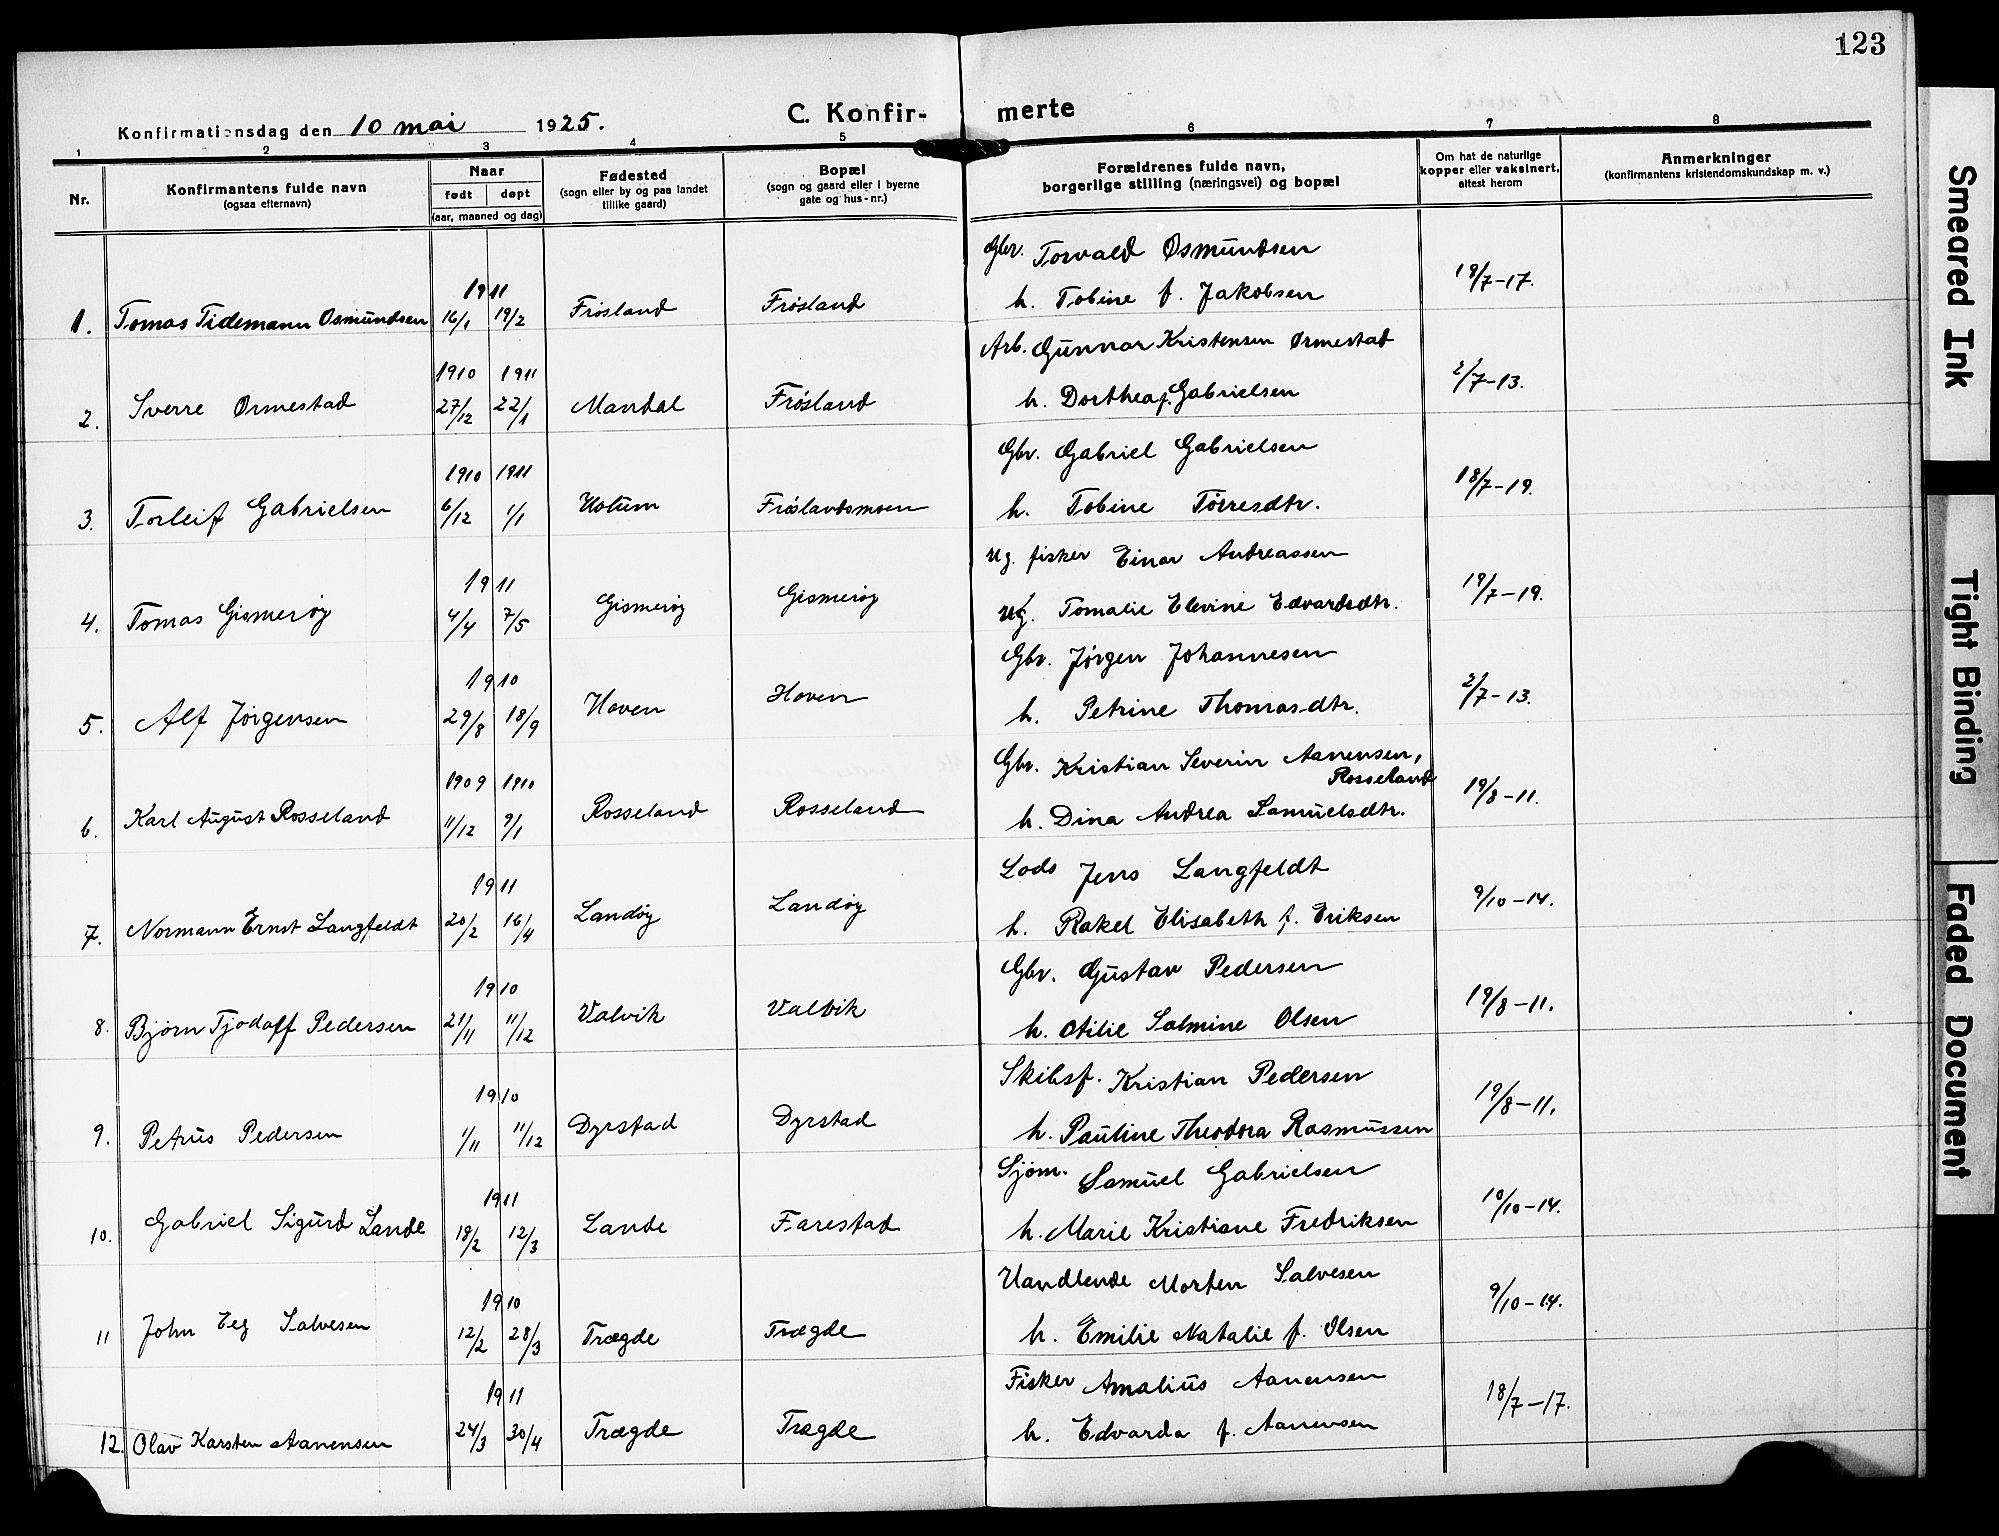 123
Konfirmationsdag den 10 mai 1925.
C. Konfir-merte
1 2 3 4 5 6 7 8
Nr.
Konfirmantens fulde navn
(ogsaa efternavn)
Naar
født døpt
(aar, maaned og dag)
Fødested
(sogn eller by og paa landet
tillike gaard)
Bopæl
(sogn og gaard eller i byerne
gate og hus-nr.)
Forældrenes fulde navn,
borgerlige stilling (næringsvei) og bopæl
Om hat de naturlige
kopper eller vaksinert,
attest herom
Anmerkninger
(konfirmantens kristendomskundskap m. v.)
Gbr. Torvald Osmundsen
1911
1. Tomas Tidemann Osmundsen 16/1 19/2 Frøsland Frøsland h. Tobine f. Jakobsen 18/7-17.
Arb. Gunnar Kristensen Ormestad
1910 1911
2. Sverre Ormestad 27/12 22/1 Mandal Frøsland h. Dorthea f. Gabrielsen 2/7-13.
Gbr. Gabriel Gabrielsen
1910 1911
3. Torleif Gabrielsen 6/12 1/1 Holum Frøslandsmoen h. Tobine Tørresdtr. 18/7-19.
ug. fisker Einar Andreassen
1911
4. Tomas Gismerøy 4/4 7/5 Gismerøy Gismerøy ug. Tomalie Elevine Edvardsdtr. 19/7-19.
Gbr. Jørgen Johannesen
1910
5. Alf Jørgensen 29/8 18/9 Hoven Hoven h. Petrine Thomasdtr. 2/7-13.
Gbr. Kristian Severin Aanensen,
Rosseland
1909 1910
6. Karl August Rosseland 11/12 9/1 Rosseland Rosseland h. Dina Andrea Samuelsdtr. 19/8-11.
Lods Jens Langfeldt
1911
7. Normann Ernst Langfeldt 20/2 16/4 Landøy Landøy h. Rakel Elisabeth f. Eriksen 9/10-14.
Gbr. Gustav Pedersen
1910
8. Bjørn Tjodolf Pedersen 21/11 11/12 Valvik Valvik h. Otilie Salmine Olsen 19/8-11.
Skibsf. Kristian Pedersen
1910
9. Petrus Pedersen 1/11 11/12 Dyrstad Dyrstad h. Pauline Theodora Rasmussen 19/8-11.
Sjøm. Samuel Gabrielsen
1911
10. Gabriel Sigurd Lande 18/2 12/3 Lande Farestad h. Marie Kristiane Fredriksen 10/10-14.
Handlende Morten Salvesen
1910
11 John Eeg Salvesen 12/2 28/3 Trægde Trægde h. Emilie Natalie f. Olsen 9/10-14.
Fisker Amalius Aanensen
1911
12. Olav Karsten Aanensen 24/3 30/4 Trægde Trægde h. Edvarda f. Aanensen 18/7-17.
Smeared Ink
Tight Binding
Faded Document